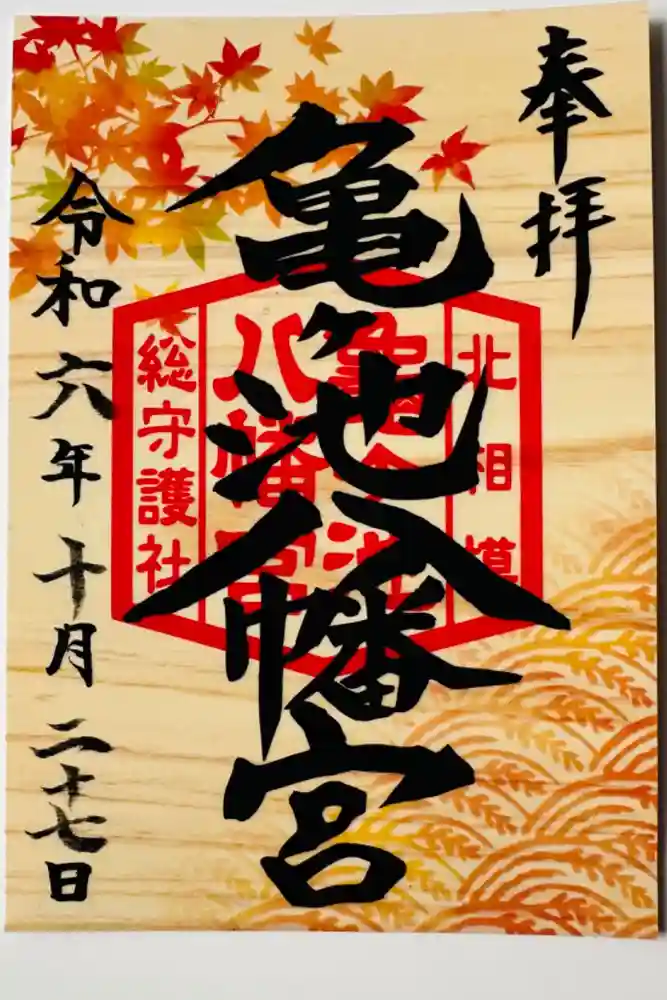 奉拝
亀ヶ池八幡宮
令和六年十月二十七日
北相模
亀ヶ池
八幡宮
総守護社